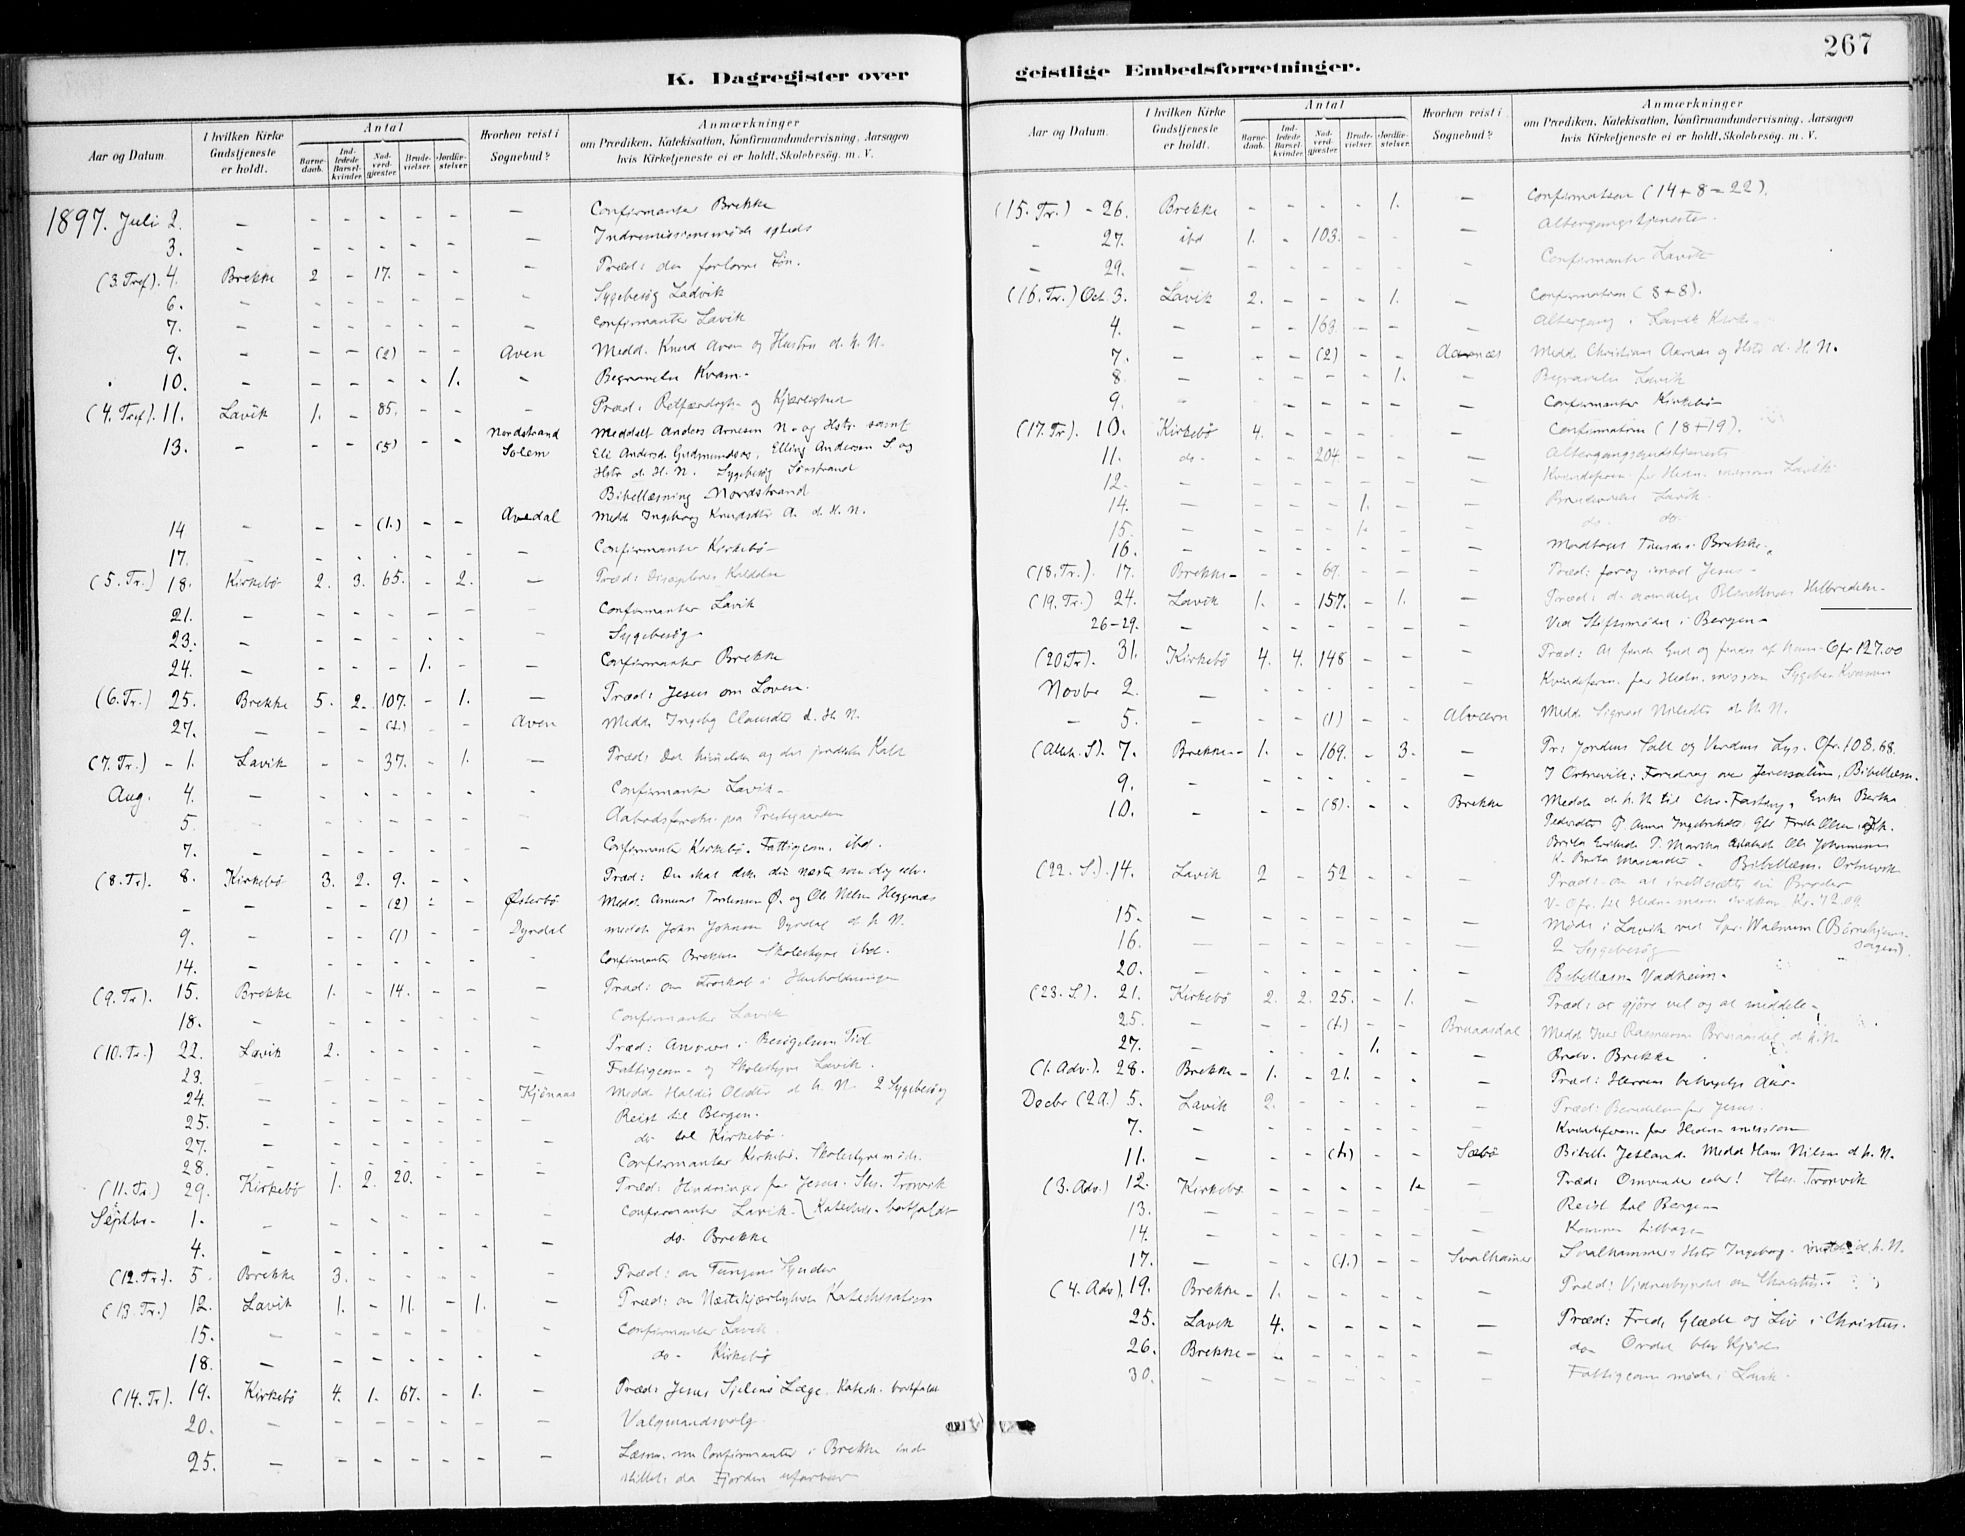 267
K. Dagregister over geistlige Embedsforretninger.
Aar og Datum | I hvilken Kirke Gudstjeneste er holdt. | Antal | Barnedaab. | Indledede Barselkvinder. | Nadverdgjæster. | Brudevielser. | Jordfæstelser. | Hvorhen reist i Sognebud? | Anmærkninger om Prædiken, Katekisation, Konfirmandundervisning, Aarsagen hvis Kirketjeneste ei er holdt, Skolebesøg. m. V.
1897. Juli 2. – – – – – – – Confirmanter Brekke
3. – – – – – – – Indremissionsmøde
(3. Tref). 4. Brekke 2 – 17. – – – Præd: den forlorne Søn.
6. – – – – – – – Sygebesøg Ladvik
7. – – – – – – Confirmanter Lavik
9. – – – (2) – – Aven Medd. Knud Aven og Hustru d. h. N.
10. – – – – – 1. – Begravelse Kvam
(4. Tref). 11. Lavik 1. – 85. – – – Præd: Retfærdigh. og Kjærlighed
13. – – – (5) – – Nordstrand Solem Meddelt Anders Arnesen N. og Hstr. samt
Eli Andersd. Gudmundsas, Elling Andersen S. og
Hstr d. H. N. Sygebesøg Sørstrand
Bibellæsning Nordstrand
14 – – – (1.) – – Avedal Medd. Ingeborg Knudsdtr A. d. H. N.
17. – – – – – – Confirmanter Kirkebø
(5. Tr.) 18. Kirkebø 2. 3. 65. – 2. – Præd: Disciplenes Kaldelse
21. – – – – – – – Confirmanter Lavik
23. – – – – – – – Sygebesøg
24. – – – – 1. – – Confirmanter Brekke
(6. Tr.) 25. Brekke 5. 2. 107. – 1. – Præd: Jesus om Loven.
27. – – – (1.) – Aven Medd. Ingebg Clausdtr d. H. N.
(7. Tr.) – 1. Lavik – – 37. – 1. – Præd: Det himmelske og det jordiske Kald
Aug. 4. – – – – – – – Confirmanter Lavik
5. – – – – – – Aabodsforretn. paa Prestegaarden
7. – – – – – – – Confirmanter Kirkebø. Fattigcom. ibd.
(8. Tr). 8. Kirkebø 3. 2. 9. – – Præd: Du skal elske din næste som dig selv.
– – – – (2) – – Østerbø Medd. Amund Torstensen Ø. og Ole Nilsen Heggenæs
9. – – – (1) – – Dyrdal medd. John Johnsen Dyrdal d. h. N.
14. – – – – – – – Confirmanter Brekke. Skolestyre ibd.
(9. Tr). 15. Brekke 1. – 14. – – – Præd: om Troskab i Husholdningen
18. – – – – – – – Confirmanter Lavik
(10. Tr.) 22. Lavik 2. – – – – – Præd: Ansvar i Besøgelsens Tid
23. – – – – – – – Fattigcom. og Skolestyre Lavik.
24. – – – – – – Kjønaas Medd. Haldis Olsdtr d. h. N. 2 Sygebesøg
25. – – – – – – Reist til Bergen.
27. – – – – – – – do til Kirkebø.
28. – – – – – – – Confirmanter Kirkebø. Skolestyremøde.
(11. Tr.) 29. Kirkebø 1. 2. 20. – – – Præd: Hindringer for Jesus. Stes. Torvik
Septbr. 1. – – – – – – Confirmanter Lavik } Katechis. bortfaldt
4. – – – – – – – do. Brekke
(12. Tr.). 5 Brekke 3. – – – – – Præd: om Tungens Synder
(13. Tr.) 12. Lavik 1. – 11. – 1. – Præd: om Næstekjærlighed. Katechisation
15. – – – – – – – Confirmanter Lavik
18. – – – – – – – do. Kirkebø
(14. Tr). 19. Kirkebø 4. 1. 67. – 1. – Præd: Jesus Sjelens Læge. Katech. bortfaldt
20. – – – – – – – Valgmandsvalg.
25. – – – – – – – Læsn. m. Confirmanter i Brekke ind-
stillet, da Fjorden ufarbar
(15. Tr.) – 26. Brekke – – – – 1. – Confirmation (14 + 8 = 22).
– 27. ibd 1. – 103. – – – Altergangstjeneste.
– 29. – – – – – – – Confirmanter Lavik
(16. Tr.) Oct. 3. Lavik 2. – – – 1. – Confirmation (8 + 8).
4. – – – 163. – – – Altergang i Lavik Kirke
7. – – – (2) – – Aarnæs Medd. Christian Aarnæs og Hstr d. H. N.
8. – – – – – 1. – Begravelse Lavik
9. – – – – – – – Confirmanter Kirkebø
(17. Tr). 10. Kirkebø 4. – – – – – Confirmation (18 + 19).
11. do. – – 204. – – – Altergangsgudstjeneste
12. – – – – – – – Kvindeforen. for Hedn. mission Lavik
14. – – – – 1. – – Brudevielse Lavik.
15. – – – – 1. – – do. do.
16. – – – – – – – Modtaget Tiende i Brekke.
(18. Tr.). 17. Brekke – – 69. – – – Præd: for og imod Jesus
(19. Tr.) 24. Lavik 1. – 157. – 1. – Præd: d. aandelige Blindhets Helbredelse
26–29. – – – – – – – Ved Stiftsmødet i Bergen
(20. Tr). 31. Kirkebø 4. 4. 148 – – – Præd: At finde Gud og findes af ham. Ofr 127.00
Novbr 2. – – – – – – – Kvindeforen. for Hedn. mission Sygebes. Kvamm
– 5. – – – (1) – – Alværn Medd. Sigrid Nilsdtr d. h. N.
(Alleh. S). 7. Brekke 1. – 169. – 3. – Pr: Jordens Salt og Verdens Lys. Ofr. 108.68.
9. – – – – – – – I Ortnevik: Foredrag over Jerusalem, Bibellæsn.
10. – – – (8) – – Brekke Medd. d. h. N. til Chr. Fasting, Enke Bertha
Bibellæsn. Ortnevik
(22. S.). 14. Lavik 2 – 52 – – – Præd: om at irettesætte sin Broder
Ofr. til Hedn. miss. indkom Kr. 12.09.
15. – – – – – – – Møde i Lavik ved Spr. Walnum (Børnehjemssagen).
16. – – – – – – – 2 Sygebesøg
20. – – – – – – – Bibellæsn Vadheim.
(23. S.). 21. Kirkebø 2. 2. 25. – 1. – Præd: at gjøre vel og at meddele
25. – – – (1.) – – Bruaasdal Medd. Iver Rasmussen Bruaasdal d. h. N.
27. – – – – 1. – – Brdv. Brekke
(1. Adv.). 28. Brekke 1. – 21. – – – Præd: Herrens behagelige Aar.
Decbr (2 A.) 5. Lavik 2. – – – – – Præd: Beredelsen for Jesus.
7. – – – – – – – Kvindeforen. for Hedn. mission
11. – – – (1.) – – Sæbø Bibell. Jetland. Medd. Hans Nilsen d. h. N.
(3. Adv.) 12. Kirkebø. – – – – 1. – Præd: Omvender eder! Stes. Torvik
13. – – – – – – – Reist til Bergen
14. – – – – – – – Kommen tilbage
17. – – – (1.) – – Svalhamer Svalhammer. Hstr Ingeborg. medd. d. h. N.
(4. Adv). 19. Brekke 1. – – – – Præd: Vidnesbyrdet om Christus
25. Lavik 4. – – – – – Præd: Fred, Glæde og Liv i Christus.
26. Brekke – – – – – – do. Ordet blev Kjød
30. – – – – – – – Fattigcom. møde i Lavik.